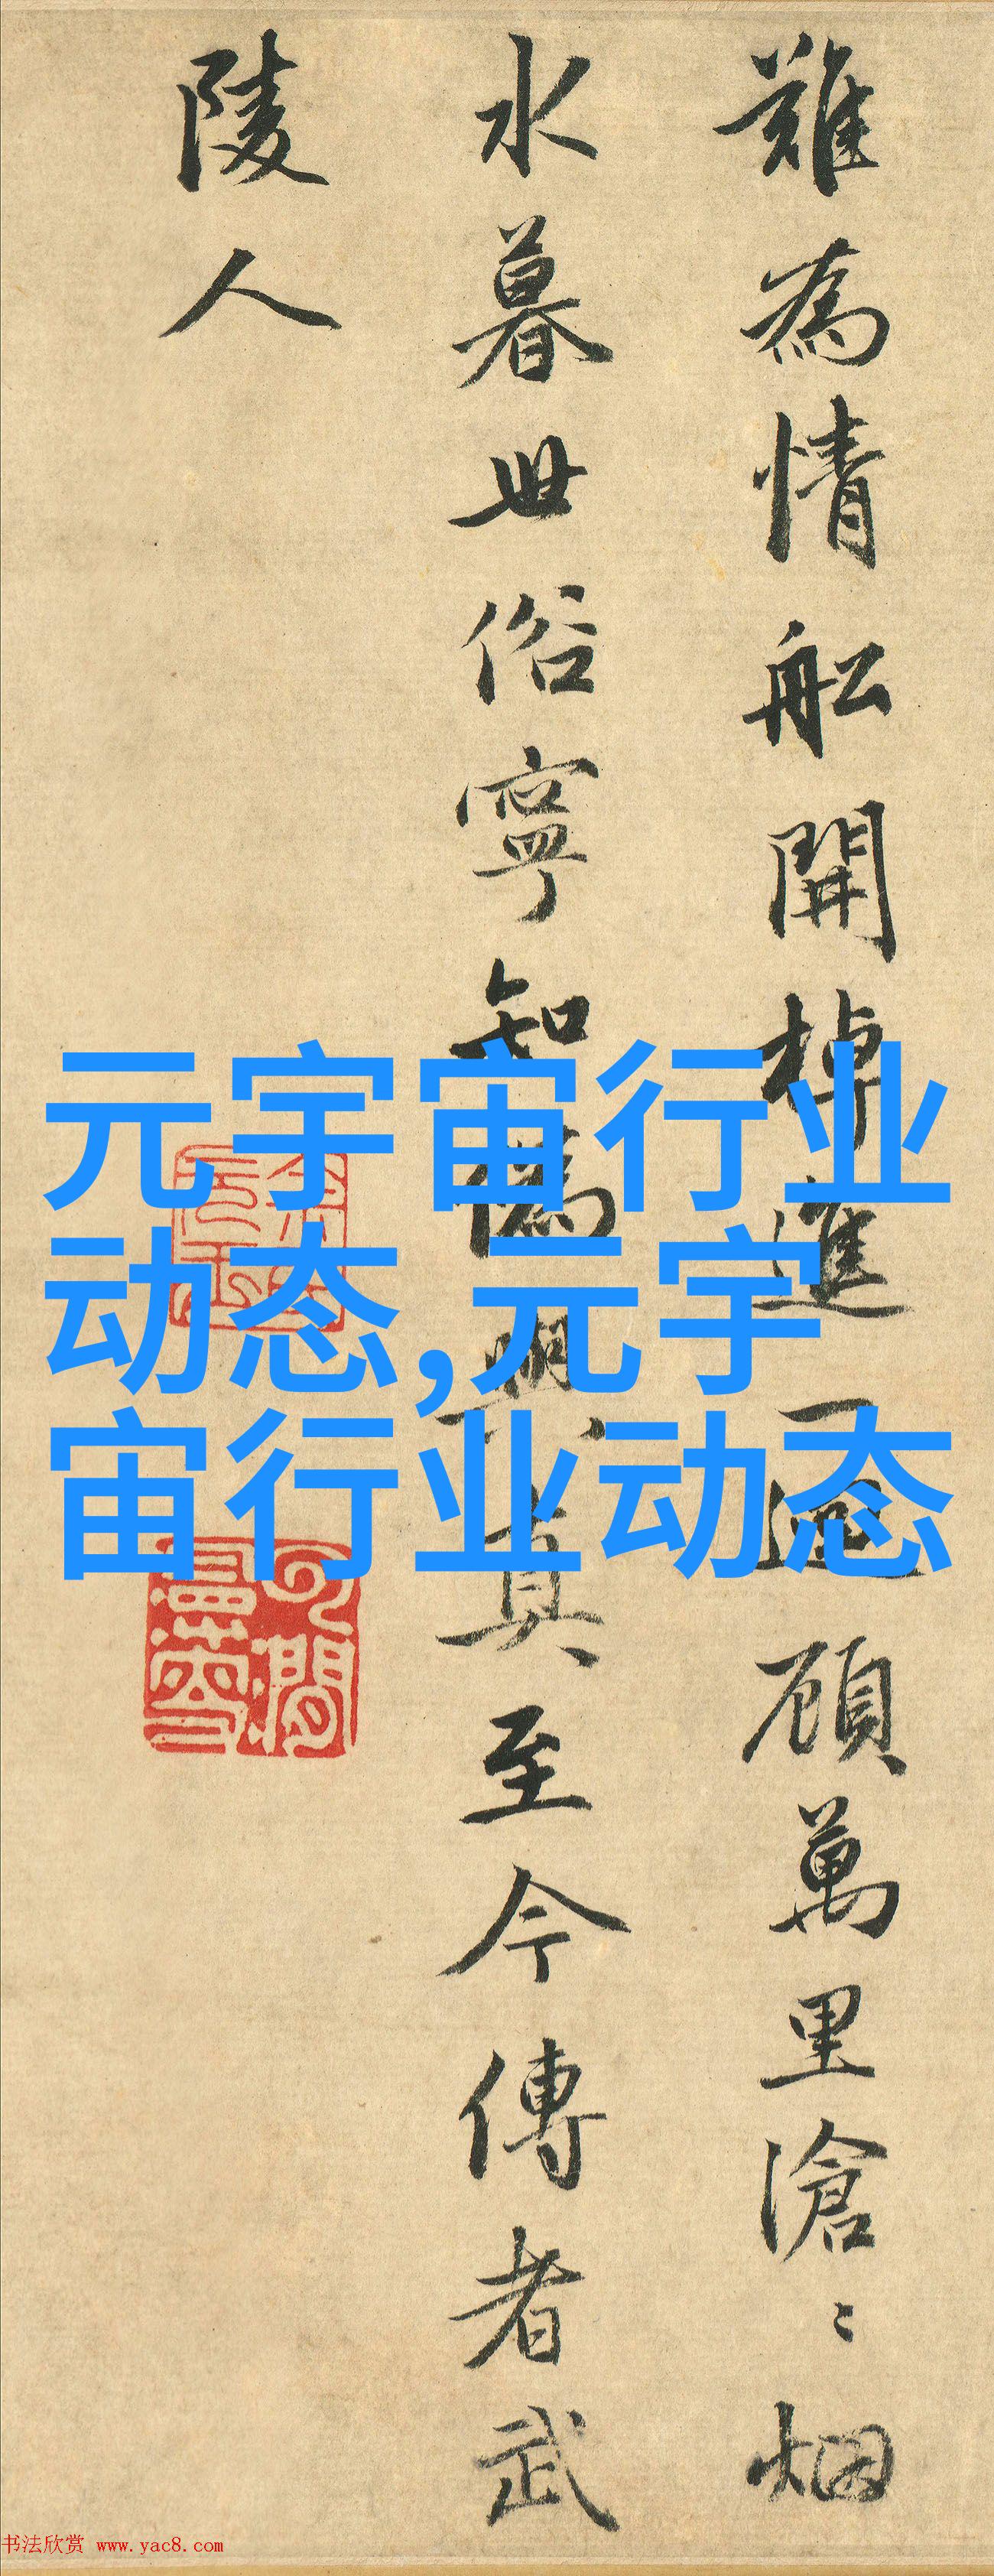 難為情舩開棹進一迴顧萬里滄〻烟
水暮世俗寧知偽與真至今傳者武
陵人
元宇宙行业
动态,元宇
宙行业动态
书法欣赏 www.yac8.com